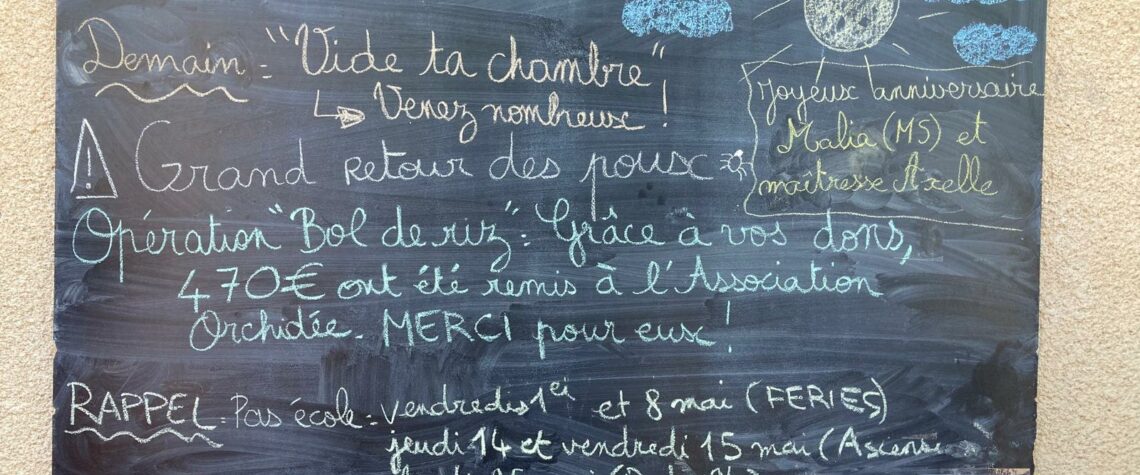 Demain : "Vide ta chambre"
Venez nombreux !
Joyeux anniversaire
Malia (MS) et
maîtresse Axelle
! Grand retour des poux
Opération "Bol de riz" : Grâce à vos dons,
470€ ont été remis à l'Association
Orchidée. MERCI pour eux !
RAPPEL : Pas école : vendredis 1er et 8 mai (FERIES)
jeudi 14 et vendredi 15 mai (Ascens